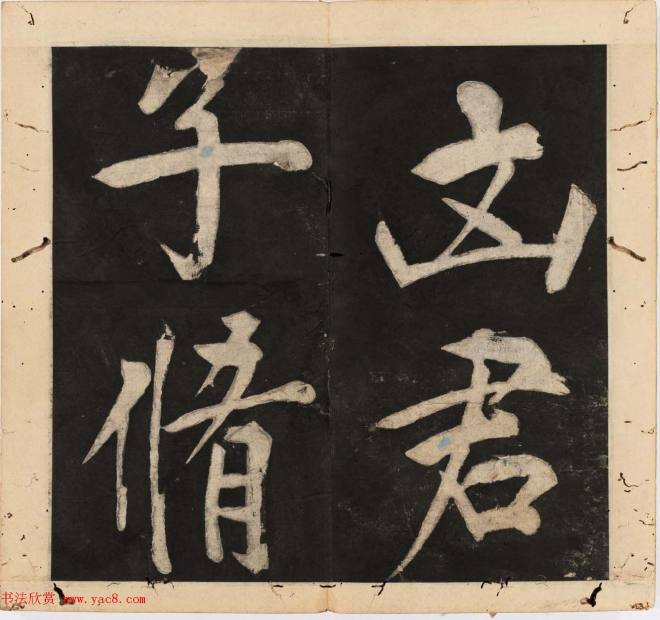 凶君
子脩
书法欣赏 www.yac8.com